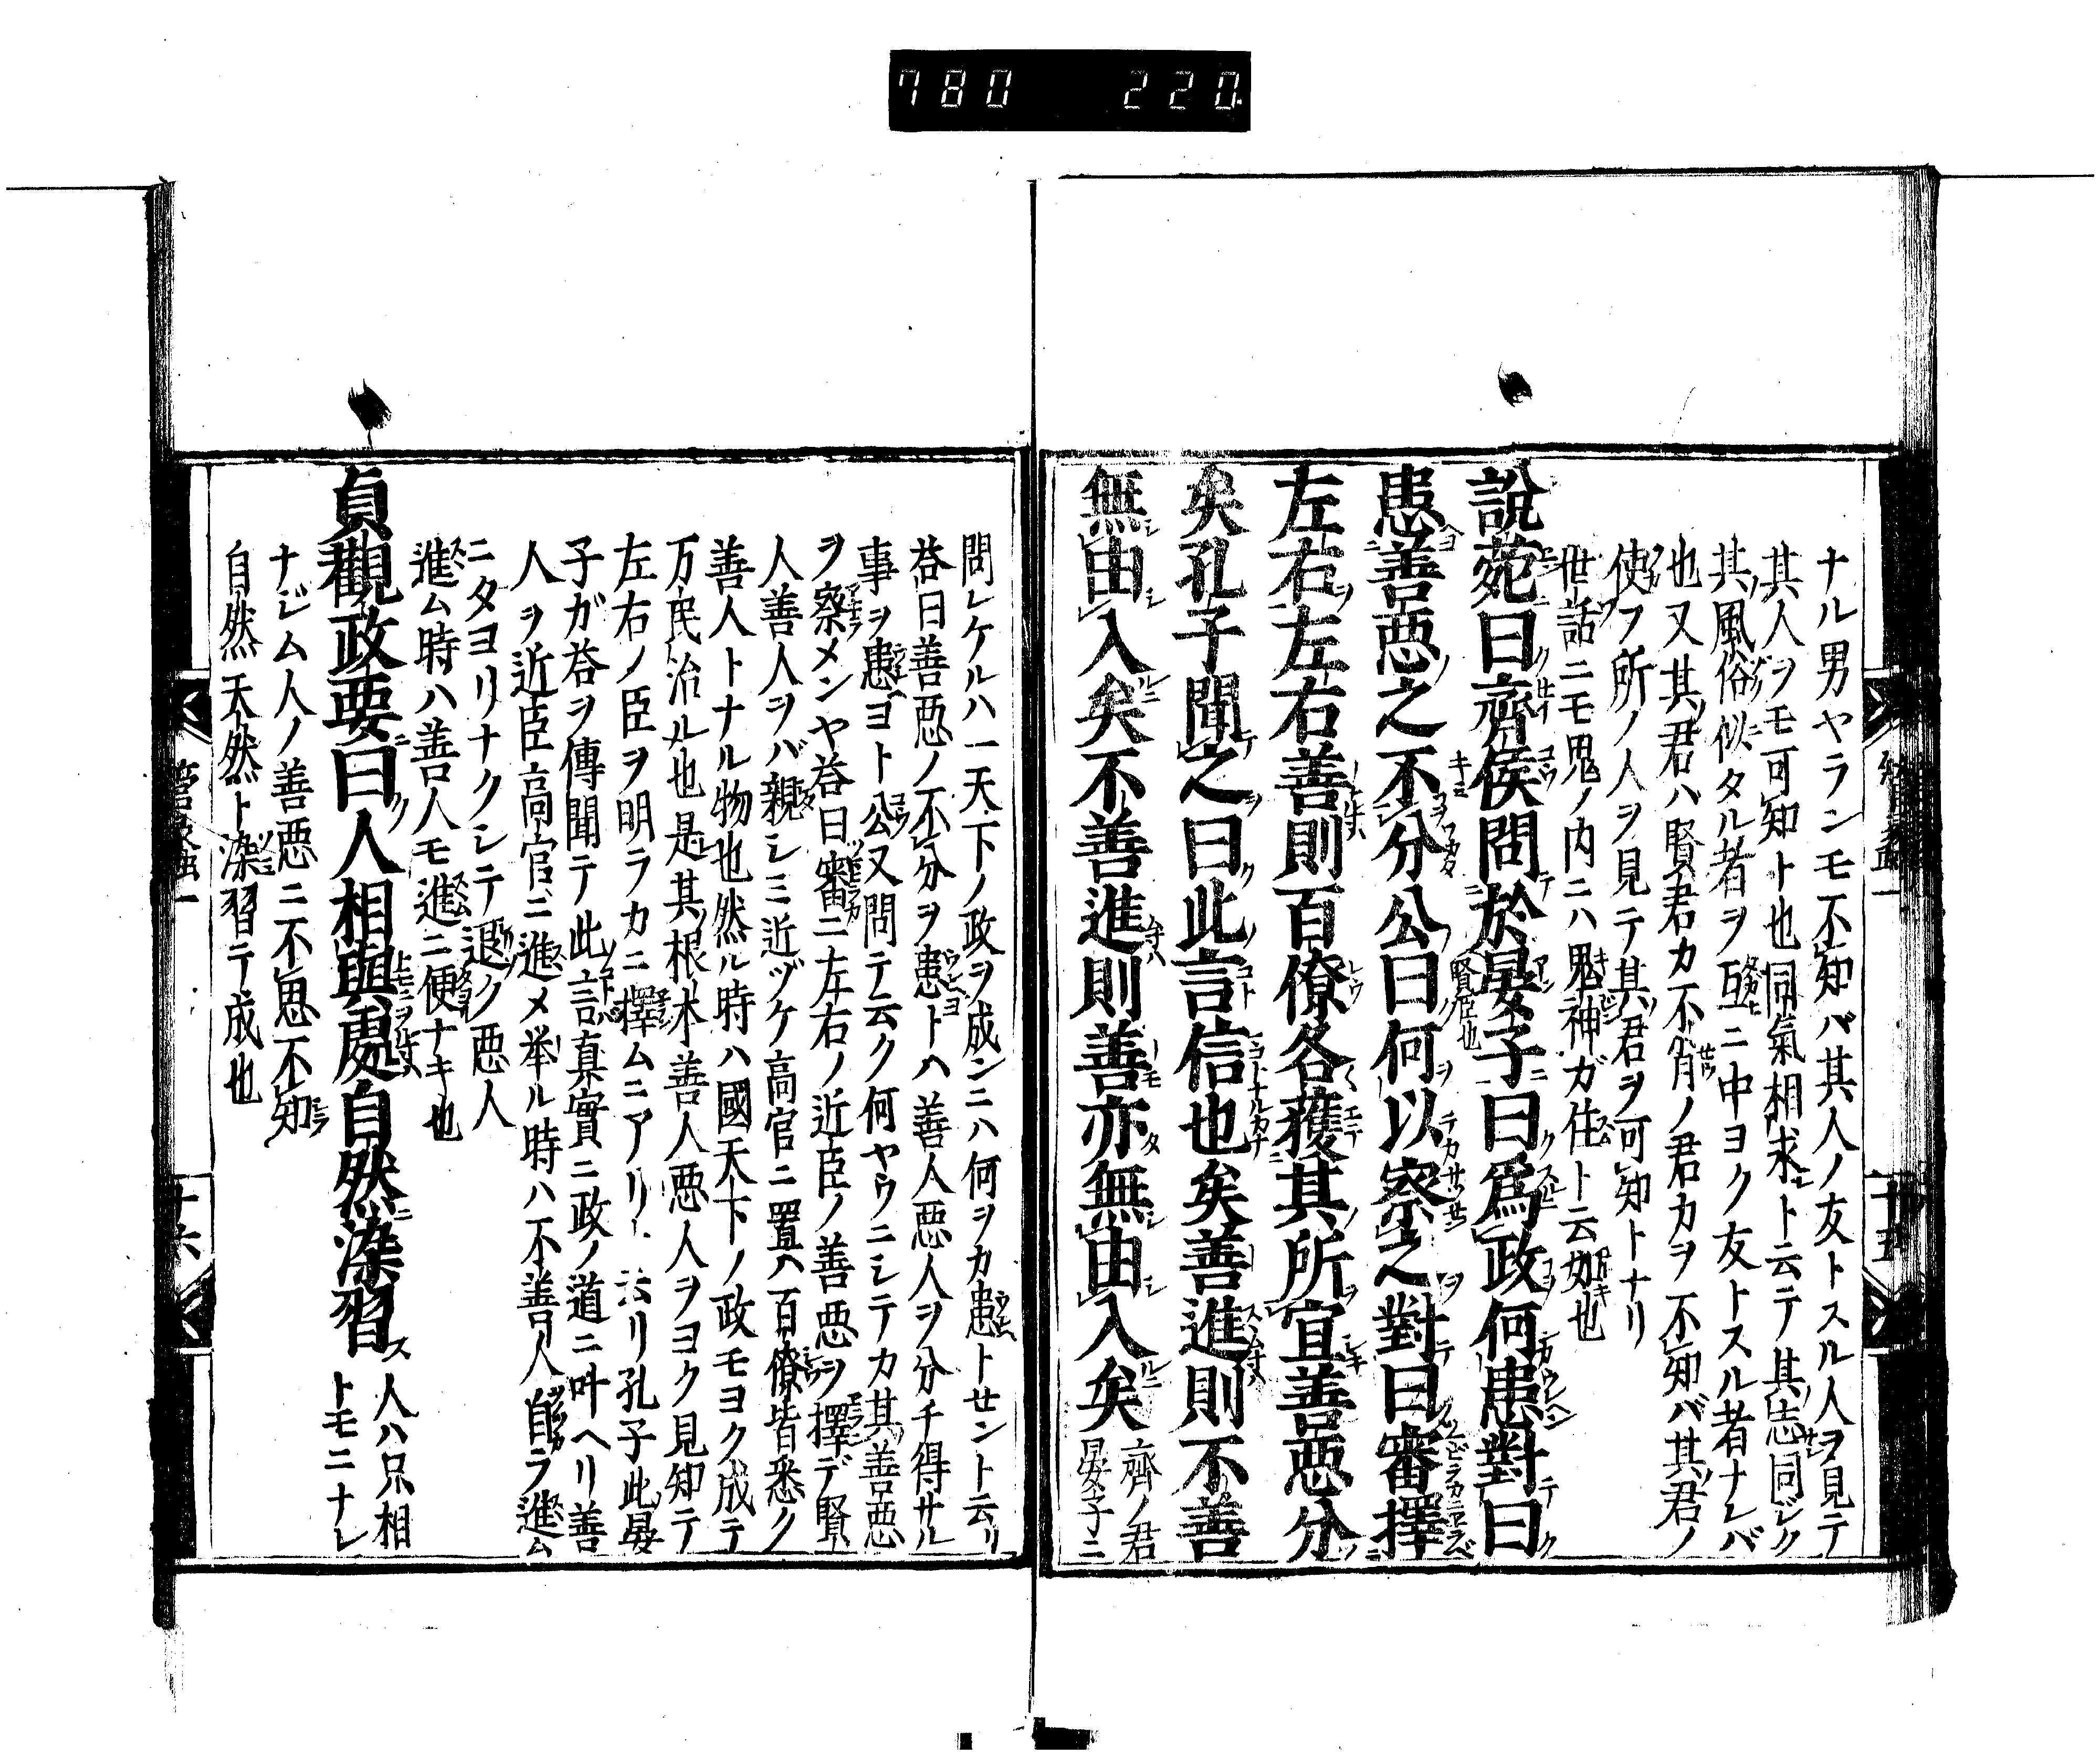 780 220
ナル男ヤランモ不知バ其人ノ友トスル人ヲ見テ
其人ヲモ可知ト也同氣相求ト云テ其志同ジク
其風俗似タル者ヲ互ニ中ヨク友トスル者ナレバ
也又其君ハ賢君カ不肖ノ君カヲ不知バ其君ノ
使フ所ノ人ヲ見テ其君ヲ可知トナリ
世話ニモ鬼ノ内ニハ鬼神ガ住ト云如也
說苑曰齊侯問於晏子曰爲政何患對曰
賢臣也
患善惡之不分公曰何以察之對曰審擇
左右左右善則百僚各獲其所宜善惡分
矣孔子聞之曰此言信也矣善進則不善
無由入矣不善進則善亦無由入矣
齊ノ君
晏子ニ
問レケルハ一天下ノ政ヲ成ンニハ何ヲカ患トせント云リ
荅曰善惡ノ不分ヲ患トハ善人惡人ヲ分チ得サル
事ヲ患ヨト公又問テ云ク何ヤウニシテカ其善惡
ヲ察メンヤ荅曰審ニ左右ノ近臣ノ善惡ヲ擇デ賢
人善人ヲバ親シミ近ヅケ高官ニ置ハ百僚皆悉ク
善人トナル物也然ル時ハ國天下ノ政モヨク成テ
万民治ル也是其根本善人惡人ヲヨク見知テ
左右ノ臣ヲ明ラカニ擇ムニアリト云リ孔子此晏
子ガ荅ヲ傳聞テ此言真實ニ政ノ道ニ叶ヘリ善
人ヲ近臣高官ニ進メ挙ル時ハ不善人自ラ進ム
ニタヨリナクシテ退ク惡人
進ム時ハ善人モ進ニ便ナキ也
貞觀政要曰人相與處自然染習
人ハ只相
トモニナレ
ナジム人ノ善惡ニ不思不知
自然天然ト染習テ成也
十五
十六